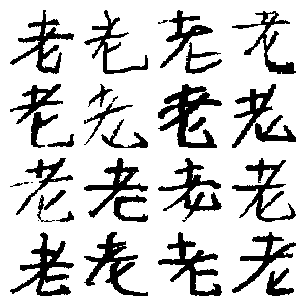 老老老老
老老老老
老老老老
老老老老